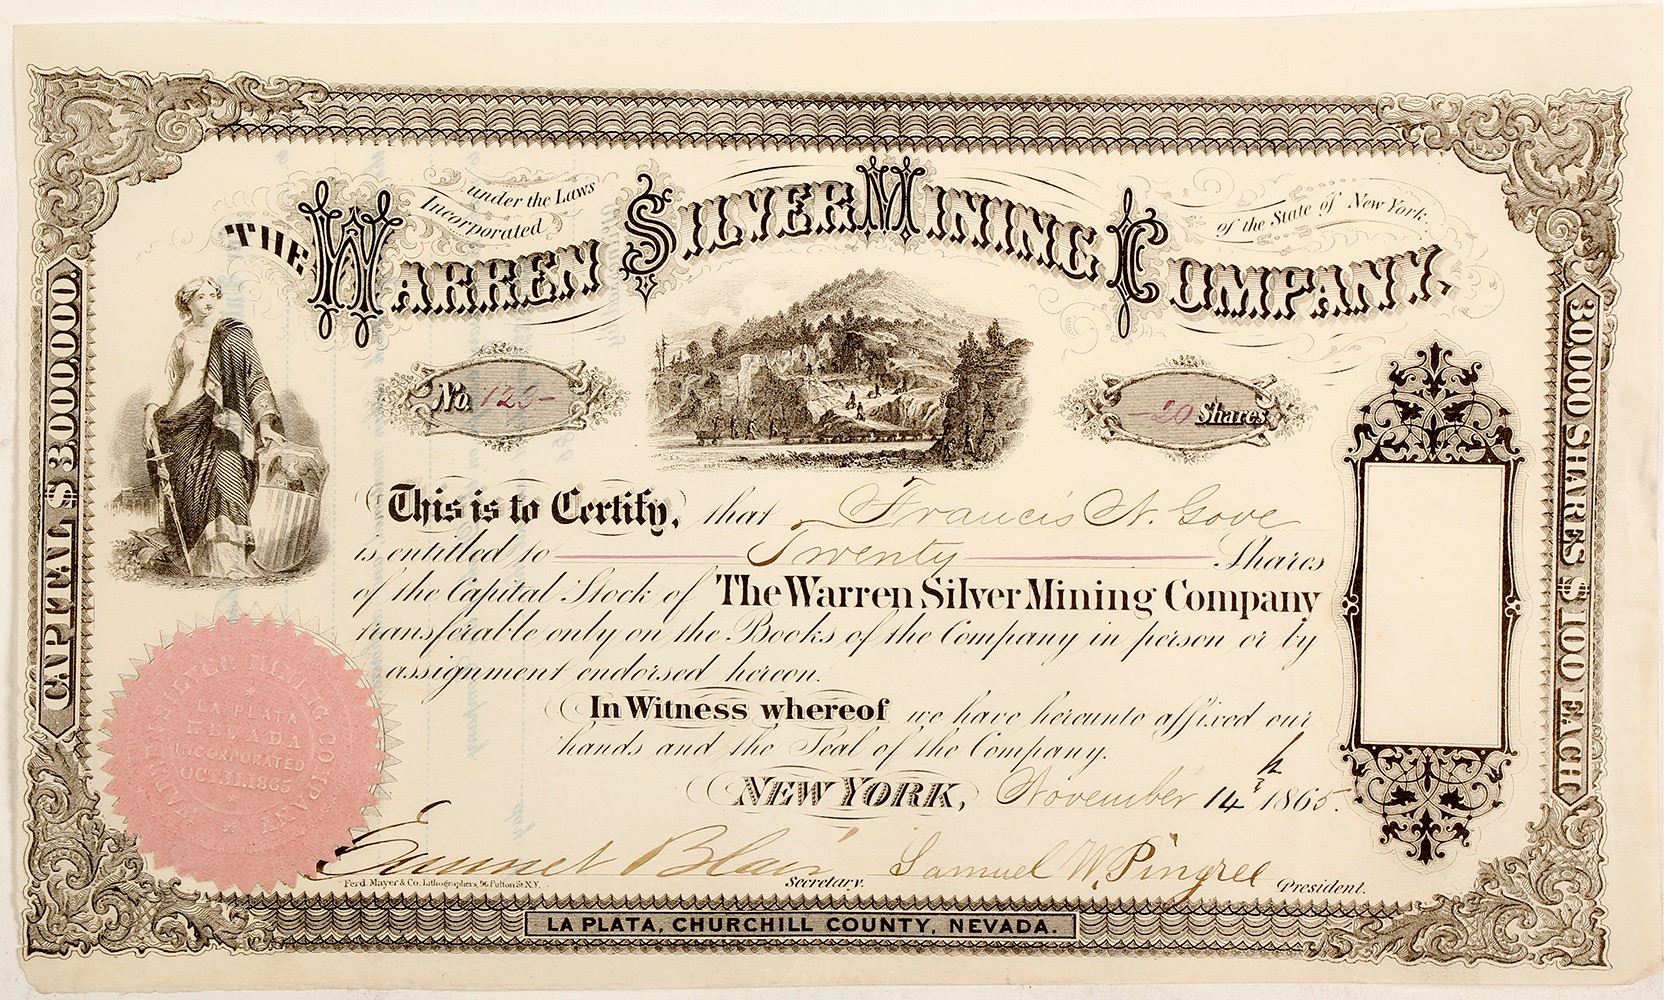 Incorporated under the Laws of the State of New York.
THE WARREN SILVER MINING COMPANY.
No. 125-
-20 Shares
CAPITAL $3.000.000.
30.000 SHARES $100 EACH
This is to Certify, that Francis N. Gove
is entitled to Twenty Shares
of the Capital Stock of The Warren Silver Mining Company
transferable only on the Books of the Company in person or by
assignment endorsed hereon.
In Witness whereof we have hereunto affixed our
hands and the Seal of the Company.
NEW YORK, November 14th 1865.
WARREN SILVER MINING COMPANY
LA PLATA
NEVADA
INCORPORATED
OCT. 11. 1865
Blair Secretary. Samuel W. Pingree President.
Ferd. Mayer & Co. Lithographers, 96 Fulton St. N.Y.
LA PLATA, CHURCHILL COUNTY, NEVADA.